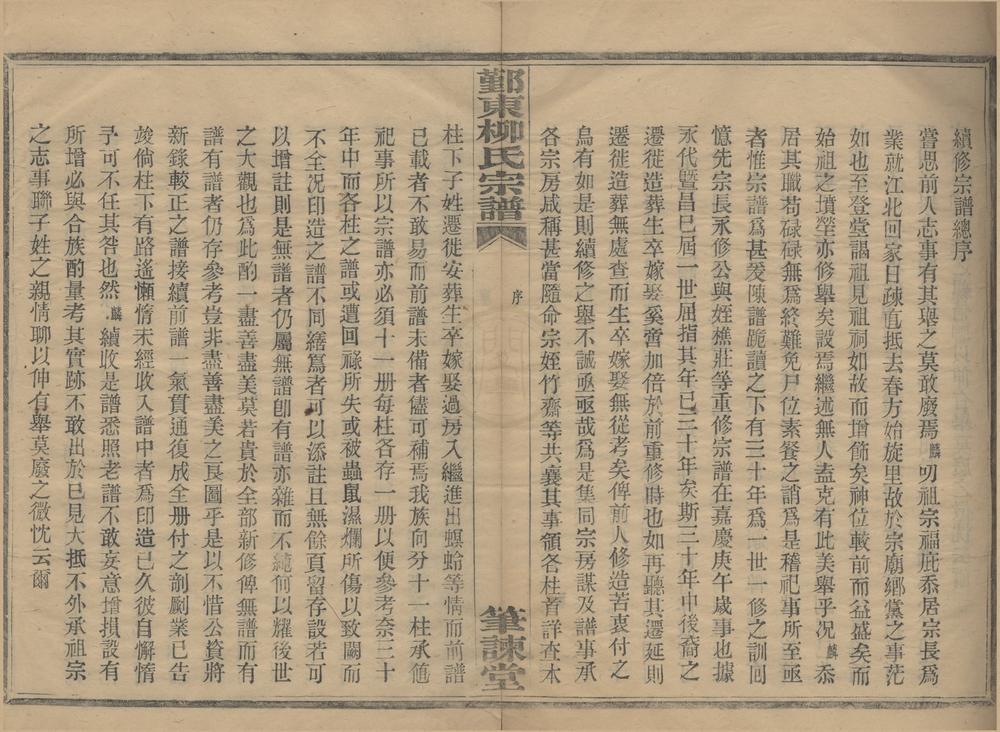 續修宗譜總序
嘗思前人志事有其舉之莫敢廢焉麟叨祖宗福庇忝居宗長爲
業就江北回家日疎直抵去春方始旋里故於宗廟鄉黨之事茫
如也至登堂謁祖見祖祠如故而增飾矣神位較前而益盛矣而
始祖之墳塋亦修舉矣設焉繼述無人盍克有此美舉乎况麟忝
居其職苟碌碌無爲終難免尸位素餐之誚爲是稽祀事所至亟
者惟宗譜爲甚爰陳譜跪讀之下有三十年爲一世一修之訓囘
憶先宗長永修公與姪樵莊等重修宗譜在嘉慶庚午歲事也據
永代暨昌巳屆一世屈指其年已三十年矣斯三十年中後裔之
遷徙造葬生卒嫁娶奚啻加倍於前重修時也如再聽其遷延則
遷徙造葬無處查而生卒嫁娶無從考矣俾前人修造苦衷付之
烏有如是則續修之舉不誠亟亟哉爲是集同宗房謀及譜事承
各宗房咸稱甚當隨命宗姪竹齋等共襄其事領各柱首詳查本
鄞東柳氏宗譜
序
筆諫堂
柱下子姓遷徙安葬生卒嫁娶過房入繼進出螟蛉等情而前譜
已載者不敢易而前譜未備者儘可補焉我族向分十一柱承値
祀事所以宗譜亦必須十一册每柱各存一册以便參考奈三十
年中而各柱之譜或遭回祿所失或被蟲鼠濕爛所傷以致闕而
不全况印造之譜不同繕寫者可以添註且無餘頁留存設若可
以增註則是無譜者仍屬無譜卽有譜亦雜而不純何以耀後世
之大觀也爲此酌一盡善盡美莫若貴於全部新修俾無譜而有
譜有譜者仍存參考豈非盡善盡美之長圖乎是以不惜公資將
新錄較正之譜接續前譜一氣貫通復成全册付之剞劂業已告
竣倘柱下有路遙懶惰未經收入譜中者爲印造已久彼自懈惰
予可不任其咎也然麟續收是譜悉照老譜不敢妄意增損設有
所增必與合族酌量考其實跡不敢出於已見大抵不外承祖宗
之志事聯子姓之親情聊以伸有舉莫廢之微忱云爾